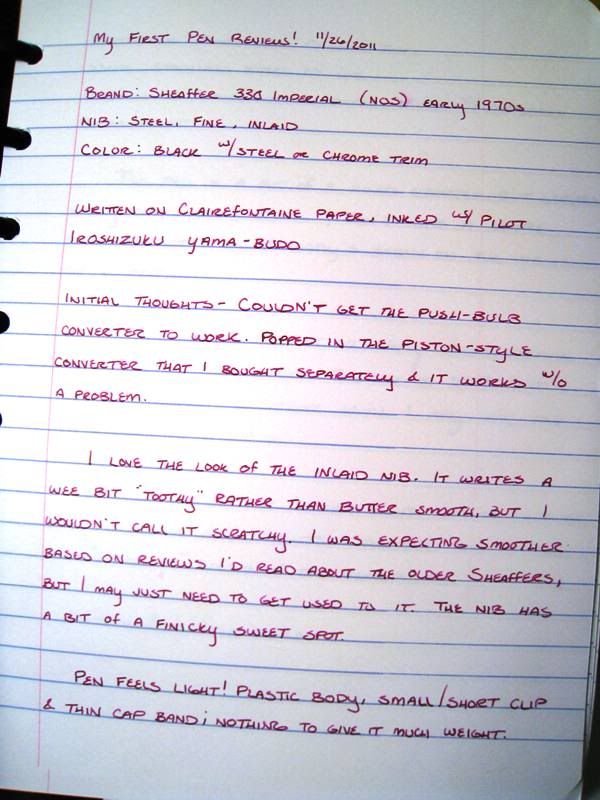 My First Pen Reviews! 11/26/2011
Brand: Sheaffer 330 Imperial (NOS) early 1970s
Nib: Steel, Fine, Inlaid
Color: Black w/ steel or chrome trim
Written on Clairefontaine paper, inked w/ Pilot
Iroshizuku Yama-Budo
Initial thoughts - Couldn't get the push-bulb
converter to work. Popped in the piston-style
converter that I bought separately & it works w/o
a problem.
I love the look of the inlaid nib. It writes a
wee bit "toothy" rather than butter smooth, but I
wouldn't call it scratchy. I was expecting smoother
based on reviews I'd read about the older Sheaffers,
but I may just need to get used to it. The nib has
a bit of a finicky sweet spot.
Pen feels light! Plastic body, small/short clip
& thin cap band; nothing to give it much weight.